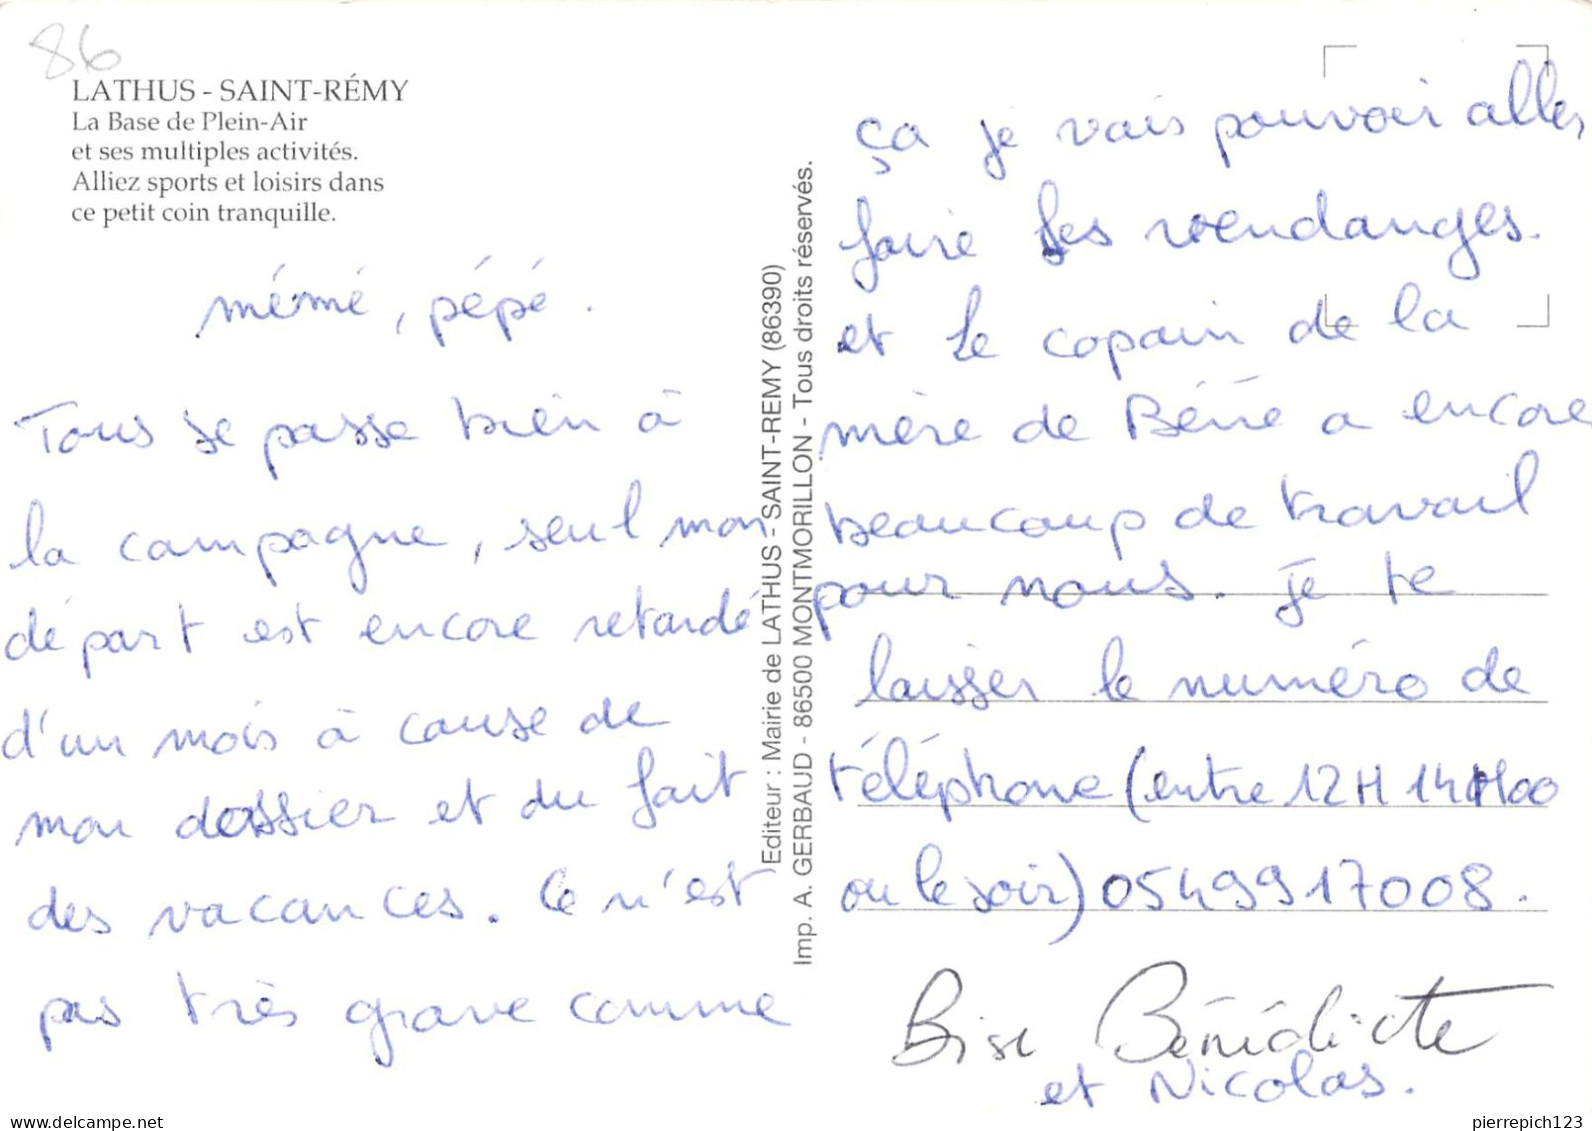 86
LATHUS - SAINT-RÉMY
La Base de Plein-Air
et ses multiples activités.
Alliez sports et loisirs dans
ce petit coin tranquille.
mémé, pépé.
Tous se passe bien à
la campagne, seul mon
départ est encore retardé
d'un mois à cause de
mon dossier et du fait
des vacances. Ce n'est
pas très grave comme
Editeur : Mairie de LATHUS - SAINT-REMY (86390)
Imp. A. GERBAUD - 86500 MONTMORILLON - Tous droits réservés.
ça je vais pouvoir aller
faire les vendanges.
et le copain de la
mère de Béné a encore
beaucoup de travail
pour nous. Je te
laisser le numéro de
téléphone (entre 12H 14H00
ou le soir) 0549917008.
Bise Bénédicte
et Nicolas.
pierrepich123